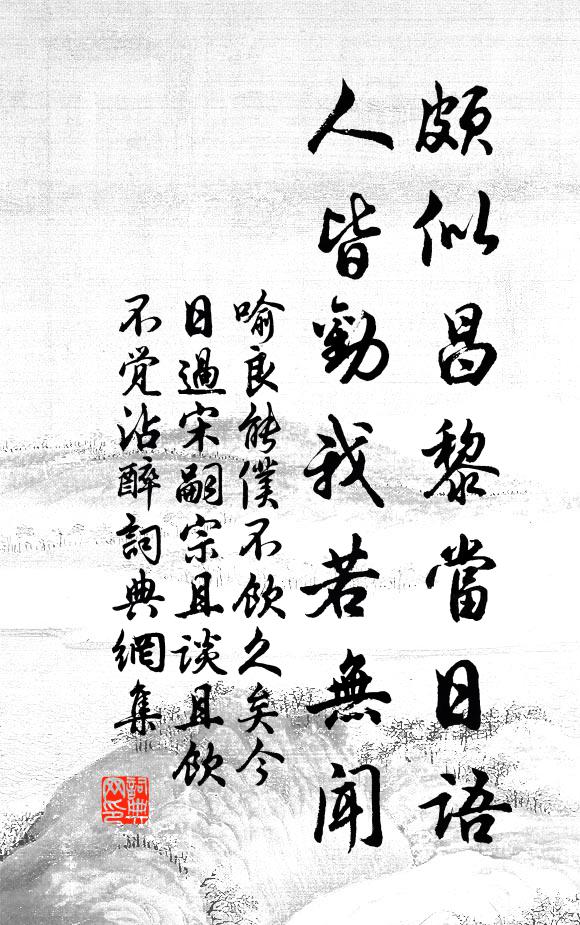 頗似昌黎當日語
人皆勸我若無聞
喻良能僕不飲久矣今
日過宋嗣宗且談且飲
不覺沾醉詞典網集
詞典
网印